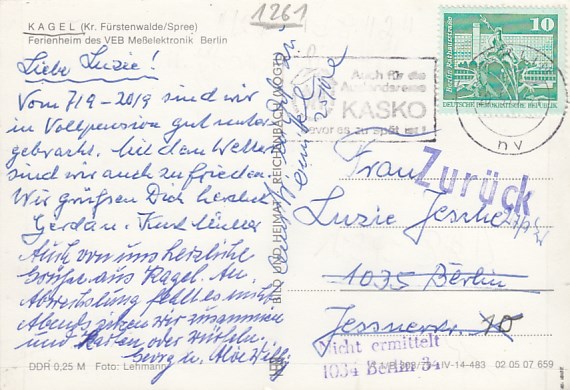 1261
KAGEL (Kr. Fürstenwalde/Spree)
Ferienheim des VEB Meßelektronik Berlin
Liebe Luzie!
Vom 7/9 - 20/9 sind wir
in Vollpension gut unter
gebracht. Mit dem Wetter
sind wir auch zufrieden.
Wir grüßen Dich herzlich
Gerda u. Kurt
Auch von uns herzliche
Grüße aus Kagel. An
Abwechslung fehlt es nicht
Abends sitzen wir zusammen
und Karten oder würfeln.
Georg u.
DDR 0,25 M Foto: Lehmann
BILD UND HEIMAT REICHENBACH (VOGTL)
Auch für die
Auslandsreise
KASKO
bevor es zu spät ist!
10
Berlin, Rathausstraße
DEUTSCHE DEMOKRATISCHE REPUBLIK
nv
Zurück
Frau
Luzie
1035 Berlin
Jessnerstr. 10
Nicht ermittelt
1034 Berlin 34
IV-14-483 02 05 07 659